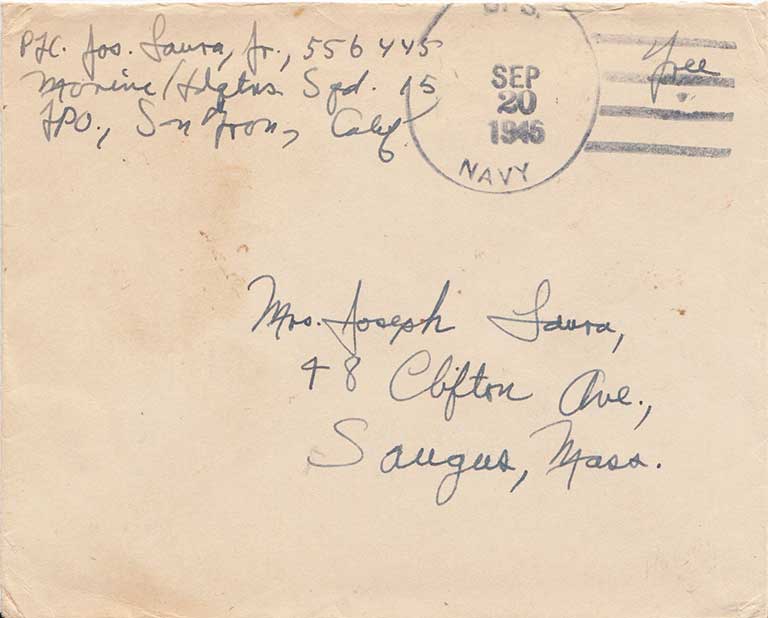 Pfc. Jos. Laura, Jr., 556445
Marine/Hdqtrs Sqd. 15
FPO., S-n Fran, Calif.
U.S.
SEP
20
1945
NAVY
Free
Mrs. Joseph Laura,
48 Clifton Ave.,
Saugus, Mass.